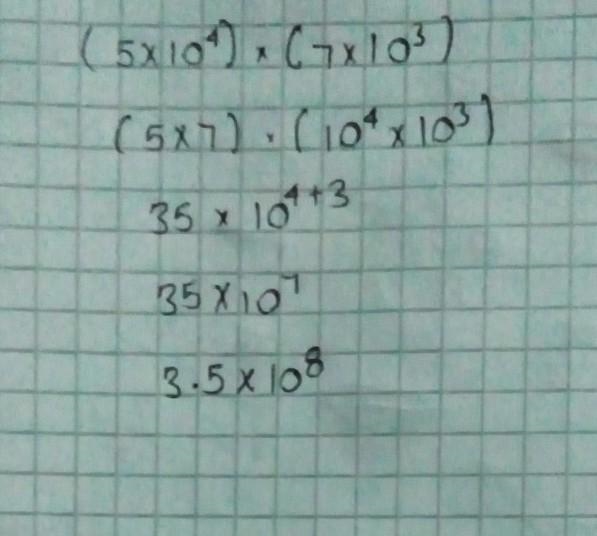 (5×10⁴) × (7×10³)
(5×7) · (10⁴×10³)
35 × 10⁴⁺³
35×10⁷
3.5×10⁸